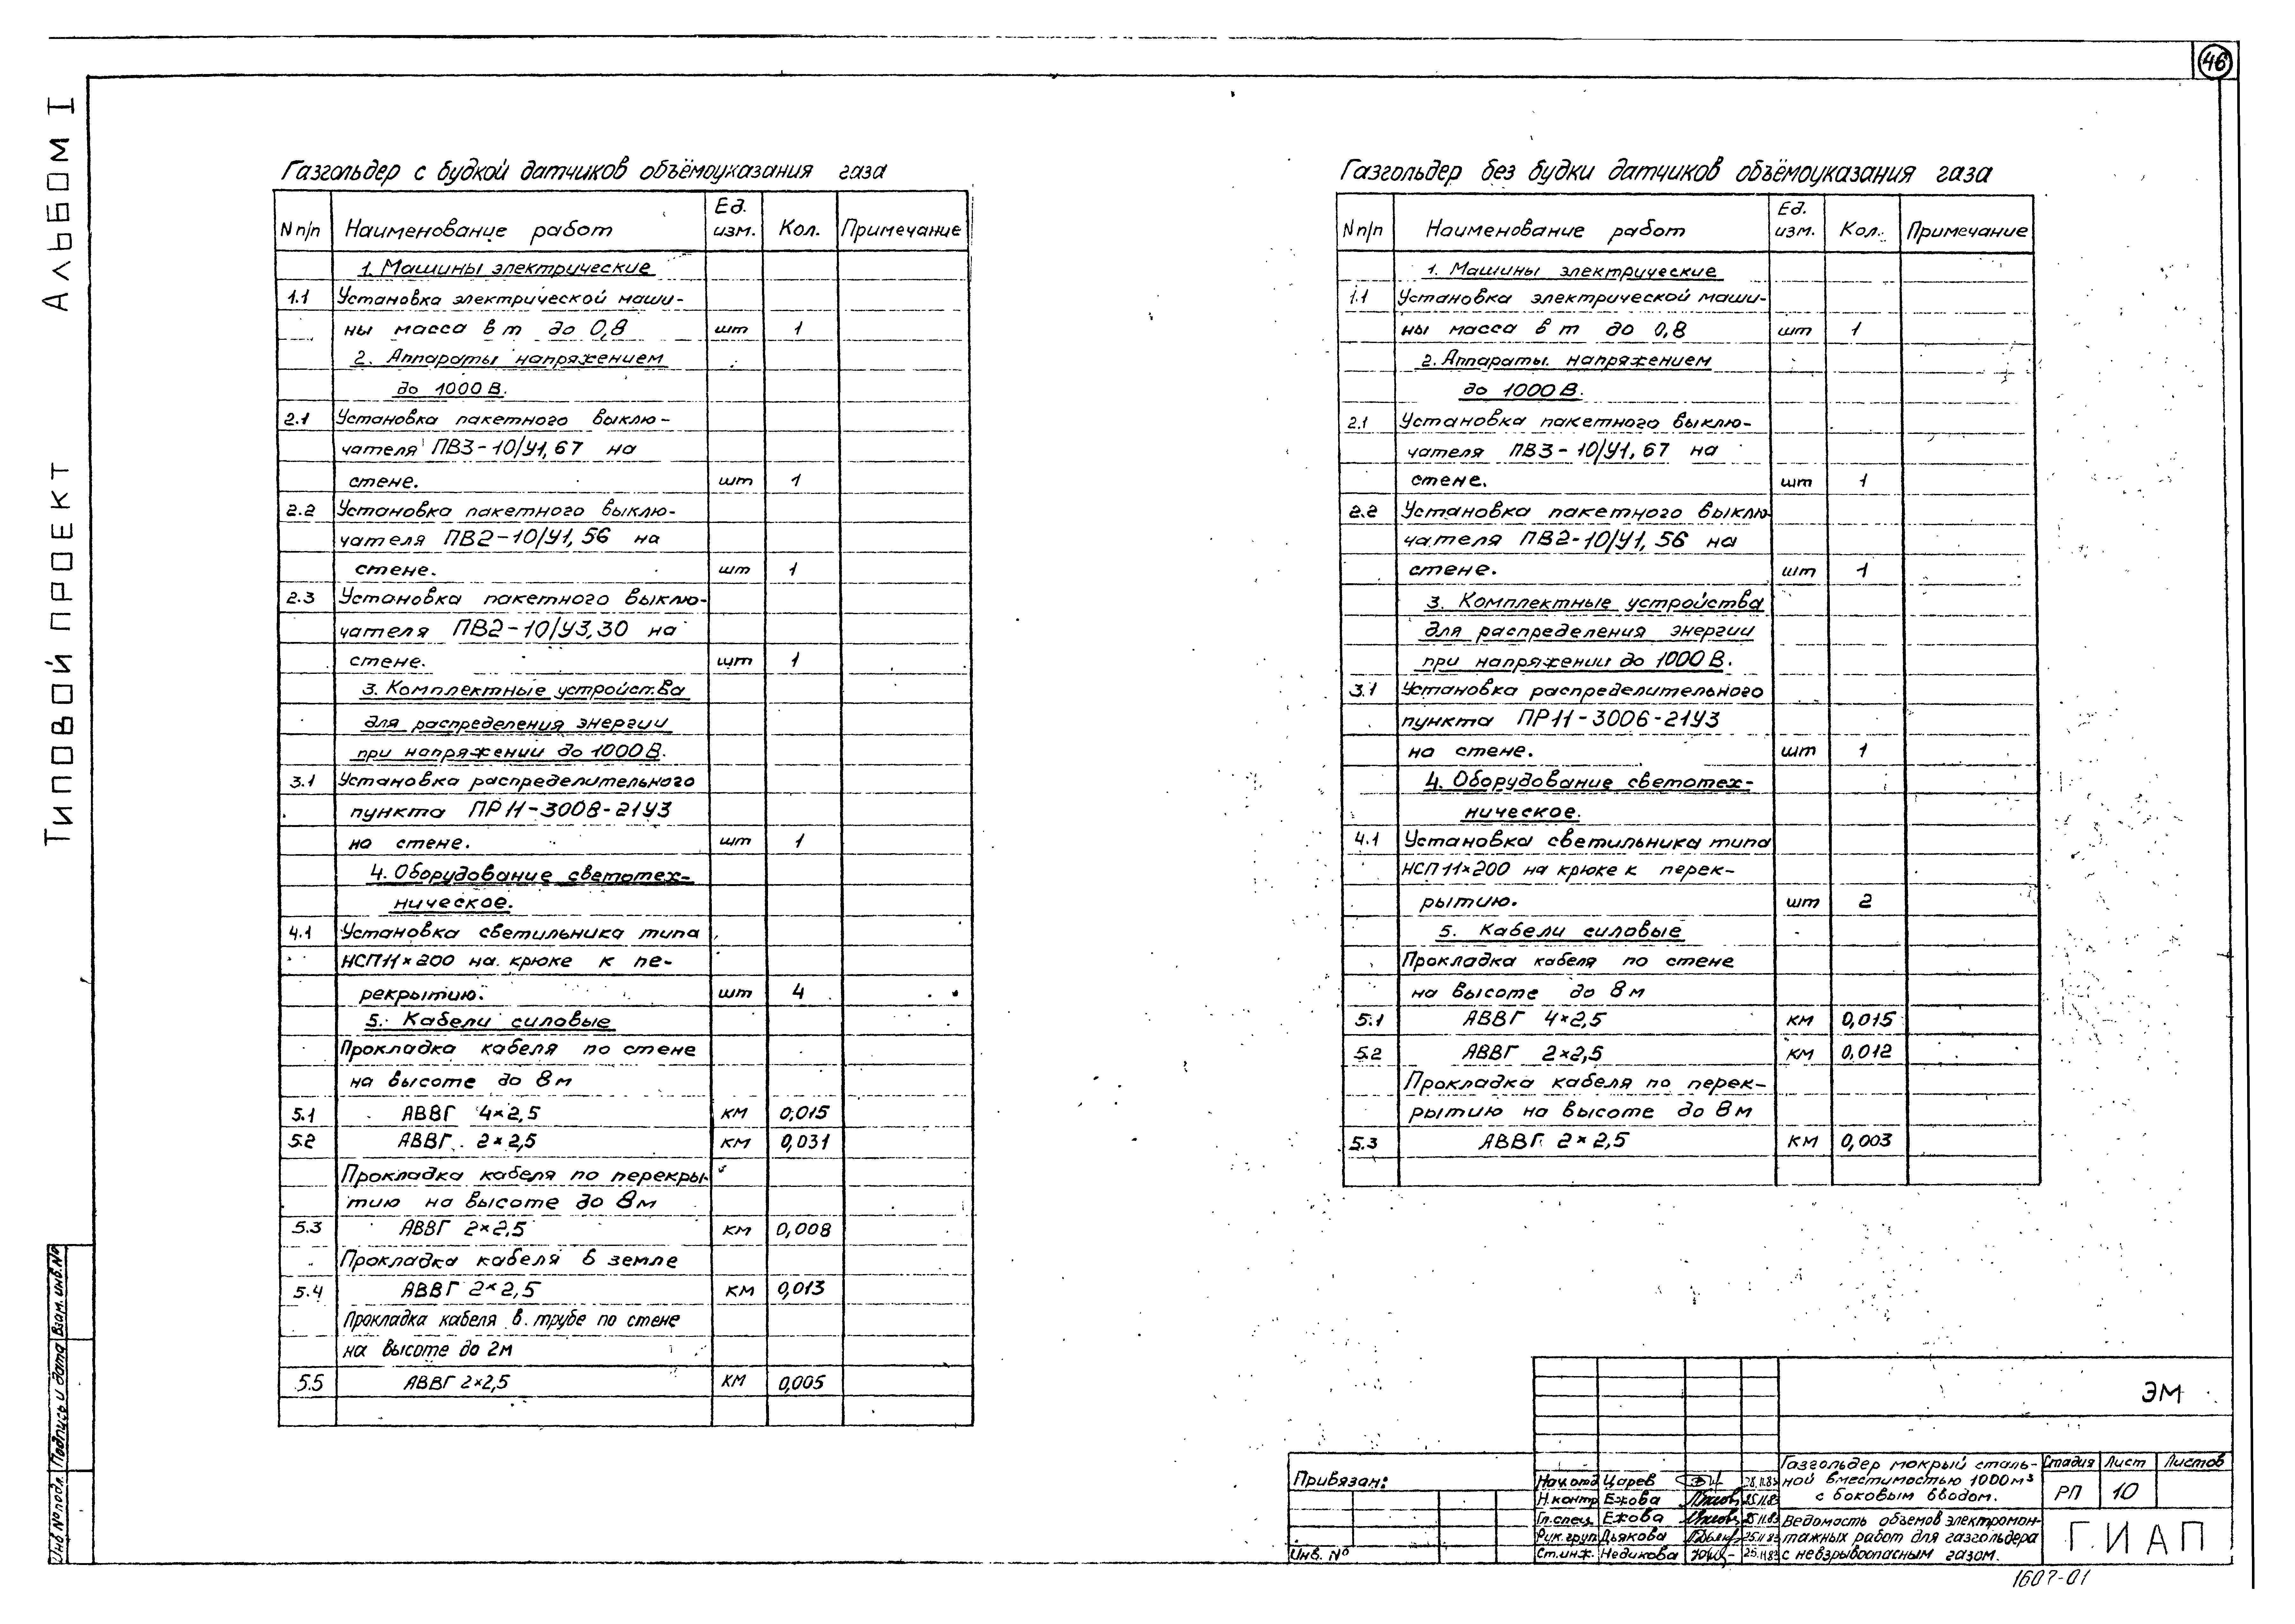 46
Альбом I
Типовой проект
Газгольдер с будкой датчиков объёмоуказания газа
N п/п Наименование работ Ед. изм. Кол. Примечание
1. Машины электрические
1.1 Установка электрической маши-
ны масса в т до 0,8 шт 1
2. Аппараты напряжением
до 1000 В.
2.1 Установка пакетного выклю-
чателя ПВ3-10/У1, 67 на
стене. шт 1
2.2 Установка пакетного выклю-
чателя ПВ2-10/У1, 56 на
стене. шт 1
2.3 Установка пакетного выклю-
чателя ПВ2-10/У3, 30 на
стене. шт 1
3. Комплектные устройства
для распределения энергии
при напряжении до 1000 В.
3.1 Установка распределительного
пункта ПР11-3008-21У3
на стене. шт 1
4. Оборудование светотех-
ническое.
4.1 Установка светильника типа
НСП11×200 на крюке к пе-
рекрытию. шт 4
5. Кабели силовые
Прокладка кабеля по стене
на высоте до 8 м
5.1 АВВГ 4×2,5 км 0,015
5.2 АВВГ 2×2,5 км 0,031
Прокладка кабеля по перекры-
тию на высоте до 8 м
5.3 АВВГ 2×2,5 км 0,008
Прокладка кабеля в земле
5.4 АВВГ 2×2,5 км 0,013
Прокладка кабеля в трубе по стене
на высоте до 2 м
5.5 АВВГ 2×2,5 км 0,005
Газгольдер без будки датчиков объёмоуказания газа
N п/п Наименование работ Ед. изм. Кол. Примечание
1. Машины электрические
1.1 Установка электрической маши-
ны масса в т до 0,8 шт 1
2. Аппараты напряжением
до 1000 В.
2.1 Установка пакетного выклю-
чателя ПВ3-10/У1, 67 на
стене. шт 1
2.2 Установка пакетного выклю-
чателя ПВ2-10/У1, 56 на
стене. шт 1
3. Комплектные устройства
для распределения энергии
при напряжении до 1000 В.
3.1 Установка распределительного
пункта ПР11-3006-21У3
на стене. шт 1
4. Оборудование светотех-
ническое.
4.1 Установка светильника типа
НСП11×200 на крюке к перек-
рытию. шт 2
5. Кабели силовые
Прокладка кабеля по стене
на высоте до 8 м
5.1 АВВГ 4×2,5 км 0,015
5.2 АВВГ 2×2,5 км 0,012
Прокладка кабеля по перек-
рытию на высоте до 8 м
5.3 АВВГ 2×2,5 км 0,003
Инв № подл. Подпись и дата Взам. инв. №
Привязан:
Инв. №
ЭМ
Нач. отд Царев
Н. контр Ежова 25.11.83
Гл. спец. Ежова 25.11.83
Рук. груп. Дьякова 25.11.83
Ст. инж. Недикова 25.11.83
Газгольдер мокрый сталь-
ной вместимостью 1000 м³
с боковым вводом.
Стадия Лист Листов
РП 10
Ведомость объемов электромон-
тажных работ для газгольдера
с невзрывоопасным газом.
ГИАП
1607-01